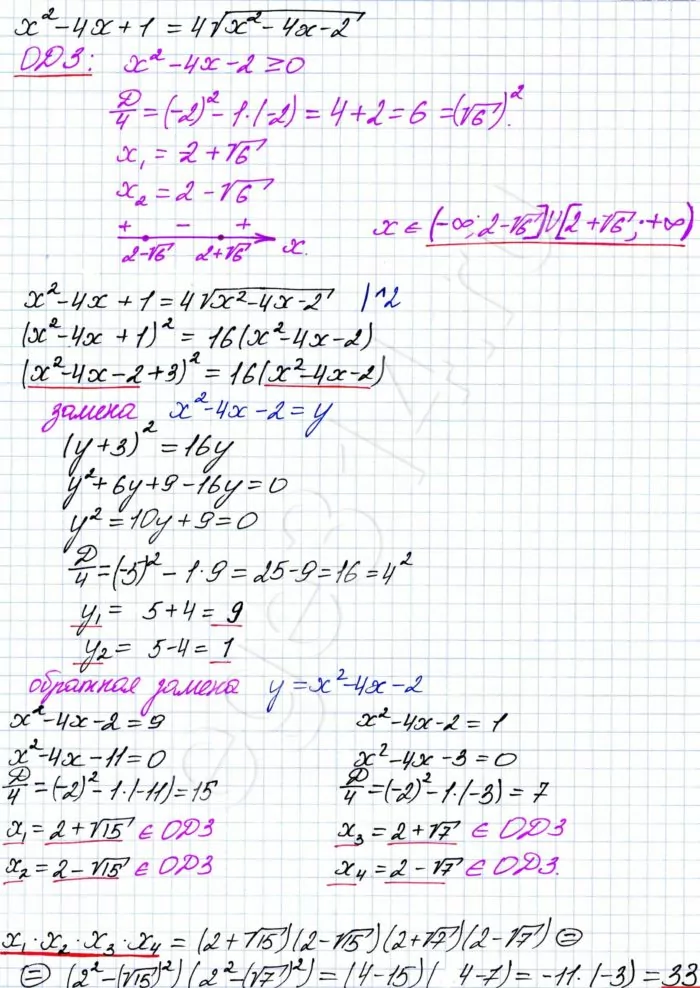 x²-4x+1 = 4√(x²-4x-2)
ОДЗ: x²-4x-2 ≥ 0
Д/4 = (-2)² - 1·(-2) = 4+2 = 6 = (√6)².
x₁ = 2+√6
x₂ = 2-√6
+ - +
2-√6 2+√6 x.
x ∈ (-∞; 2-√6]∪[2+√6; +∞)
x²-4x+1 = 4√(x²-4x-2) |^2
(x²-4x+1)² = 16(x²-4x-2)
(x²-4x-2+3)² = 16(x²-4x-2)
замена x²-4x-2 = y
(y+3)² = 16y
y²+6y+9-16y=0
y²=10y+9=0
Д/4 = (-5)² - 1·9 = 25-9 = 16 = 4²
y₁ = 5+4 = 9
y₂ = 5-4 = 1
обратная замена y = x²-4x-2
x²-4x-2 = 9 x²-4x-2 = 1
x²-4x-11=0 x²-4x-3=0
Д/4 = (-2)² - 1·(-11) = 15 Д/4 = (-2)² - 1·(-3) = 7
x₁ = 2+√15 ∈ ОДЗ x₃ = 2+√7 ∈ ОДЗ
x₂ = 2-√15 ∈ ОДЗ x₄ = 2-√7 ∈ ОДЗ.
x₁·x₂·x₃·x₄ = (2+√15)(2-√15)(2+√7)(2-√7) ⊜
⊜ (2²-(√15)²)(2²-(√7)²) = (4-15)(4-7) = -11·(-3) = 33